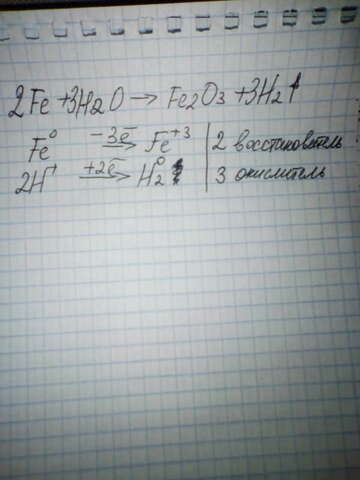 2Fe + 3H2O → Fe2O3 + 3H2↑
Fe⁰ −3e̅→ Fe⁺³ | 2 восстановитель
2H⁺ +2e̅→ H2⁰ | 3 окислитель